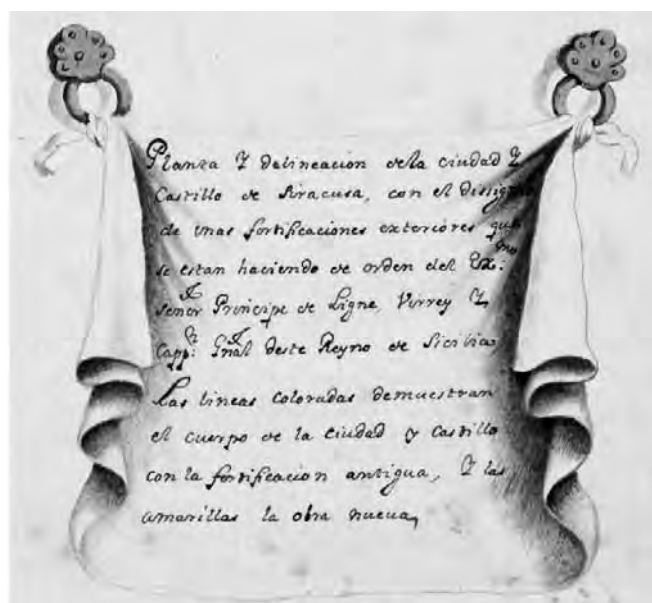 Planza Y delineacion de la ciudad Y
Castillo de Siracusa, con el dissigno
de unas fortificaciones exteriores que
se estan haciendo de orden del Exmo:
señor Principe de Ligne, Virrey Y
Cappn: Gnal deste Reyno de Sicilia,
Las lineas coloradas demuestran
el cuerpo de la ciudad y Castillo
con la fortificacion antigua, Y las
amarillas la obra nueua,